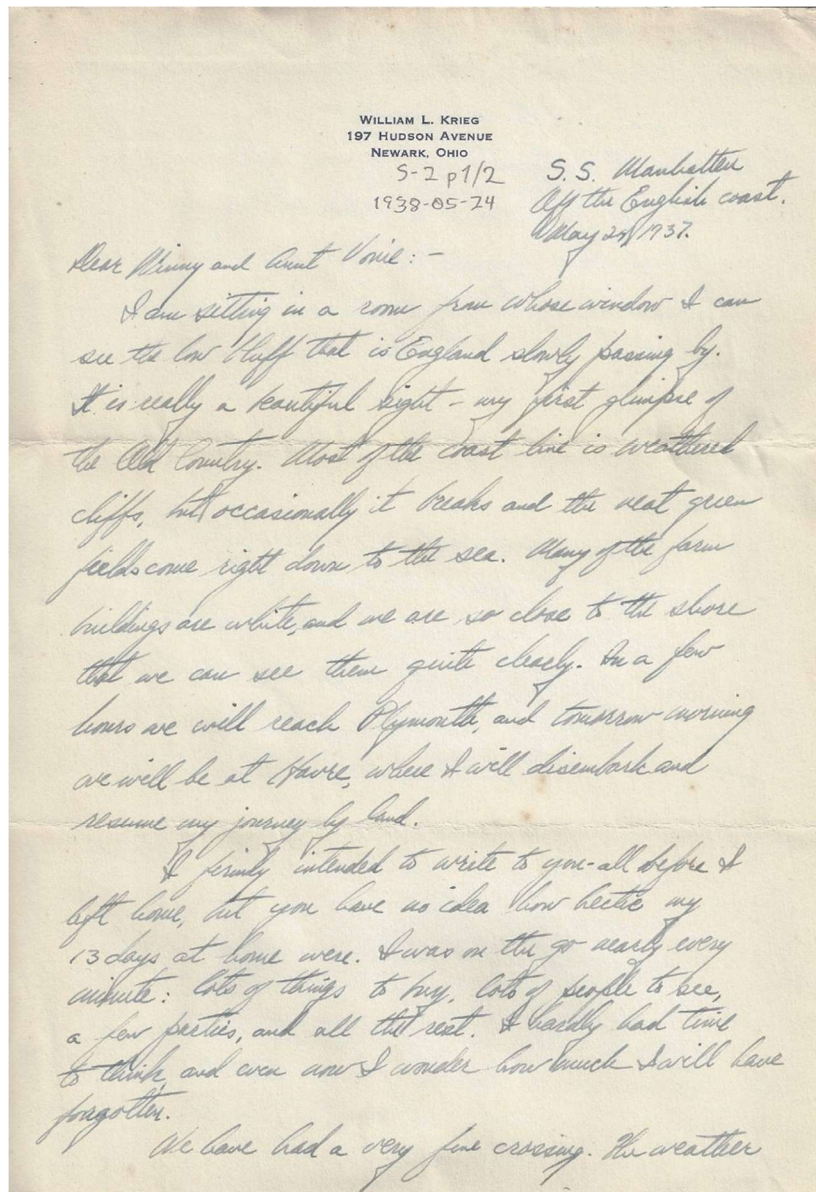 WILLIAM L. KRIEG
197 HUDSON AVENUE
NEWARK, OHIO
S-2 p1/2
1938-05-24
S. S. Manhattan
Off the English coast.
May 24, 1937.
Dear Winny and Aunt Vonie: -
I am sitting in a room from whose window I can
see the low bluff that is England slowly passing by.
It is really a beautiful sight - my first glimpse of
the Old Country. Most of the coast line is weathered
cliffs, but occasionally it breaks and the neat green
fields come right down to the sea. Many of the farm
buildings are white, and we are so close to the shore
that we can see them quite clearly. In a few
hours we will reach Plymouth, and tomorrow morning
we will be at Havre, where I will disembark and
resume my journey by land.
I firmly intended to write to you-all before I
left home, but you have no idea how hectic my
13 days at home were. I was on the go nearly every
minute: lots of things to buy, lots of people to see,
a few parties, and all the rest. I hardly had time
to think, and even now I wonder how much I will have
forgotten.
We have had a very fine crossing. The weather